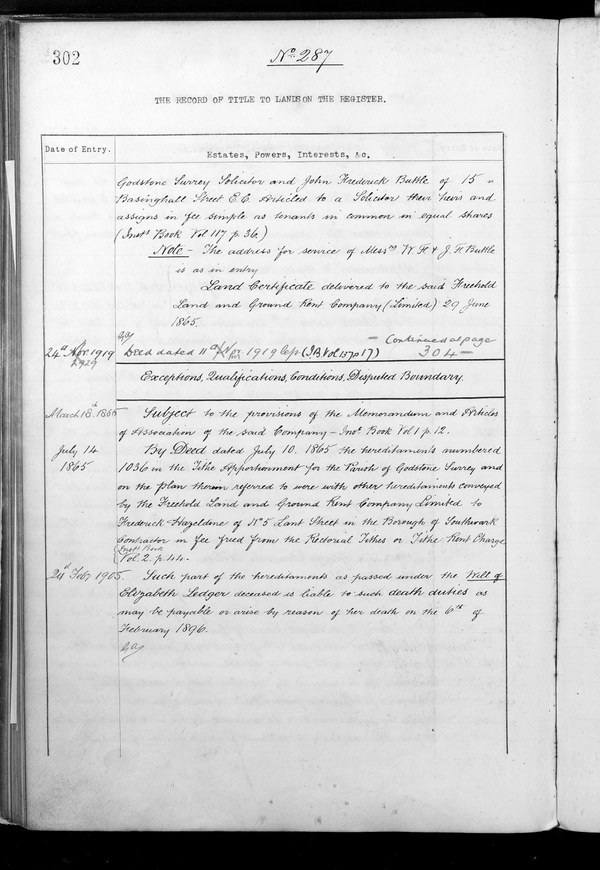 302
No 287
THE RECORD OF TITLE TO LANDS ON THE REGISTER.
Date of Entry.
Estates, Powers, Interests, &c.
Godstone Surrey Solicitor and John Frederick Buttle of 15
Basinghall Street E.C. Articled to a Solicitor their heirs and
assigns in fee simple as tenants in common in equal shares
(Inst Book Vol 117 p. 36.)
Note - The address for service of Messrs W. F. & J. F. Buttle
is as in entry
Land Certificate delivered to the said Freehold
Land and Ground Rent Company (Limited) 29 June
1865.
24th Nov. 1919
Deed dated 11th 1919 (I.B. Vol 157 p 17)
Continued at page
304
Exceptions, Qualifications, Conditions, Disputed Boundary.
March 18th 1865
Subject to the provisions of the Memorandum and Articles
of Association of the said Company - Inst Book Vol 1 p. 12.
July 14
1865
By Deed dated July 10. 1865 the hereditaments numbered
1036 in the Tithe Apportionment for the Parish of Godstone Surrey and
on the plan therein referred to were with other hereditaments conveyed
by the Freehold Land and Ground Rent Company Limited to
Frederick Hazeldine of No 5 Lant Street in the Borough of Southwark
Contractor in fee freed from the Rectorial Tithes or Tithe Rent Charge
Inst Book
Vol. 2. p. 44.
24th Feby 1905.
Such part of the hereditaments as passed under the Will of
Elizabeth Ledger deceased is liable to such death duties as
may be payable or arise by reason of her death on the 6th of
February 1896.